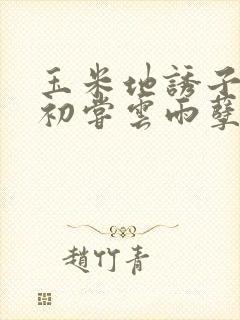 玉米地誘子
初嘗雲雨孽
趙竹青